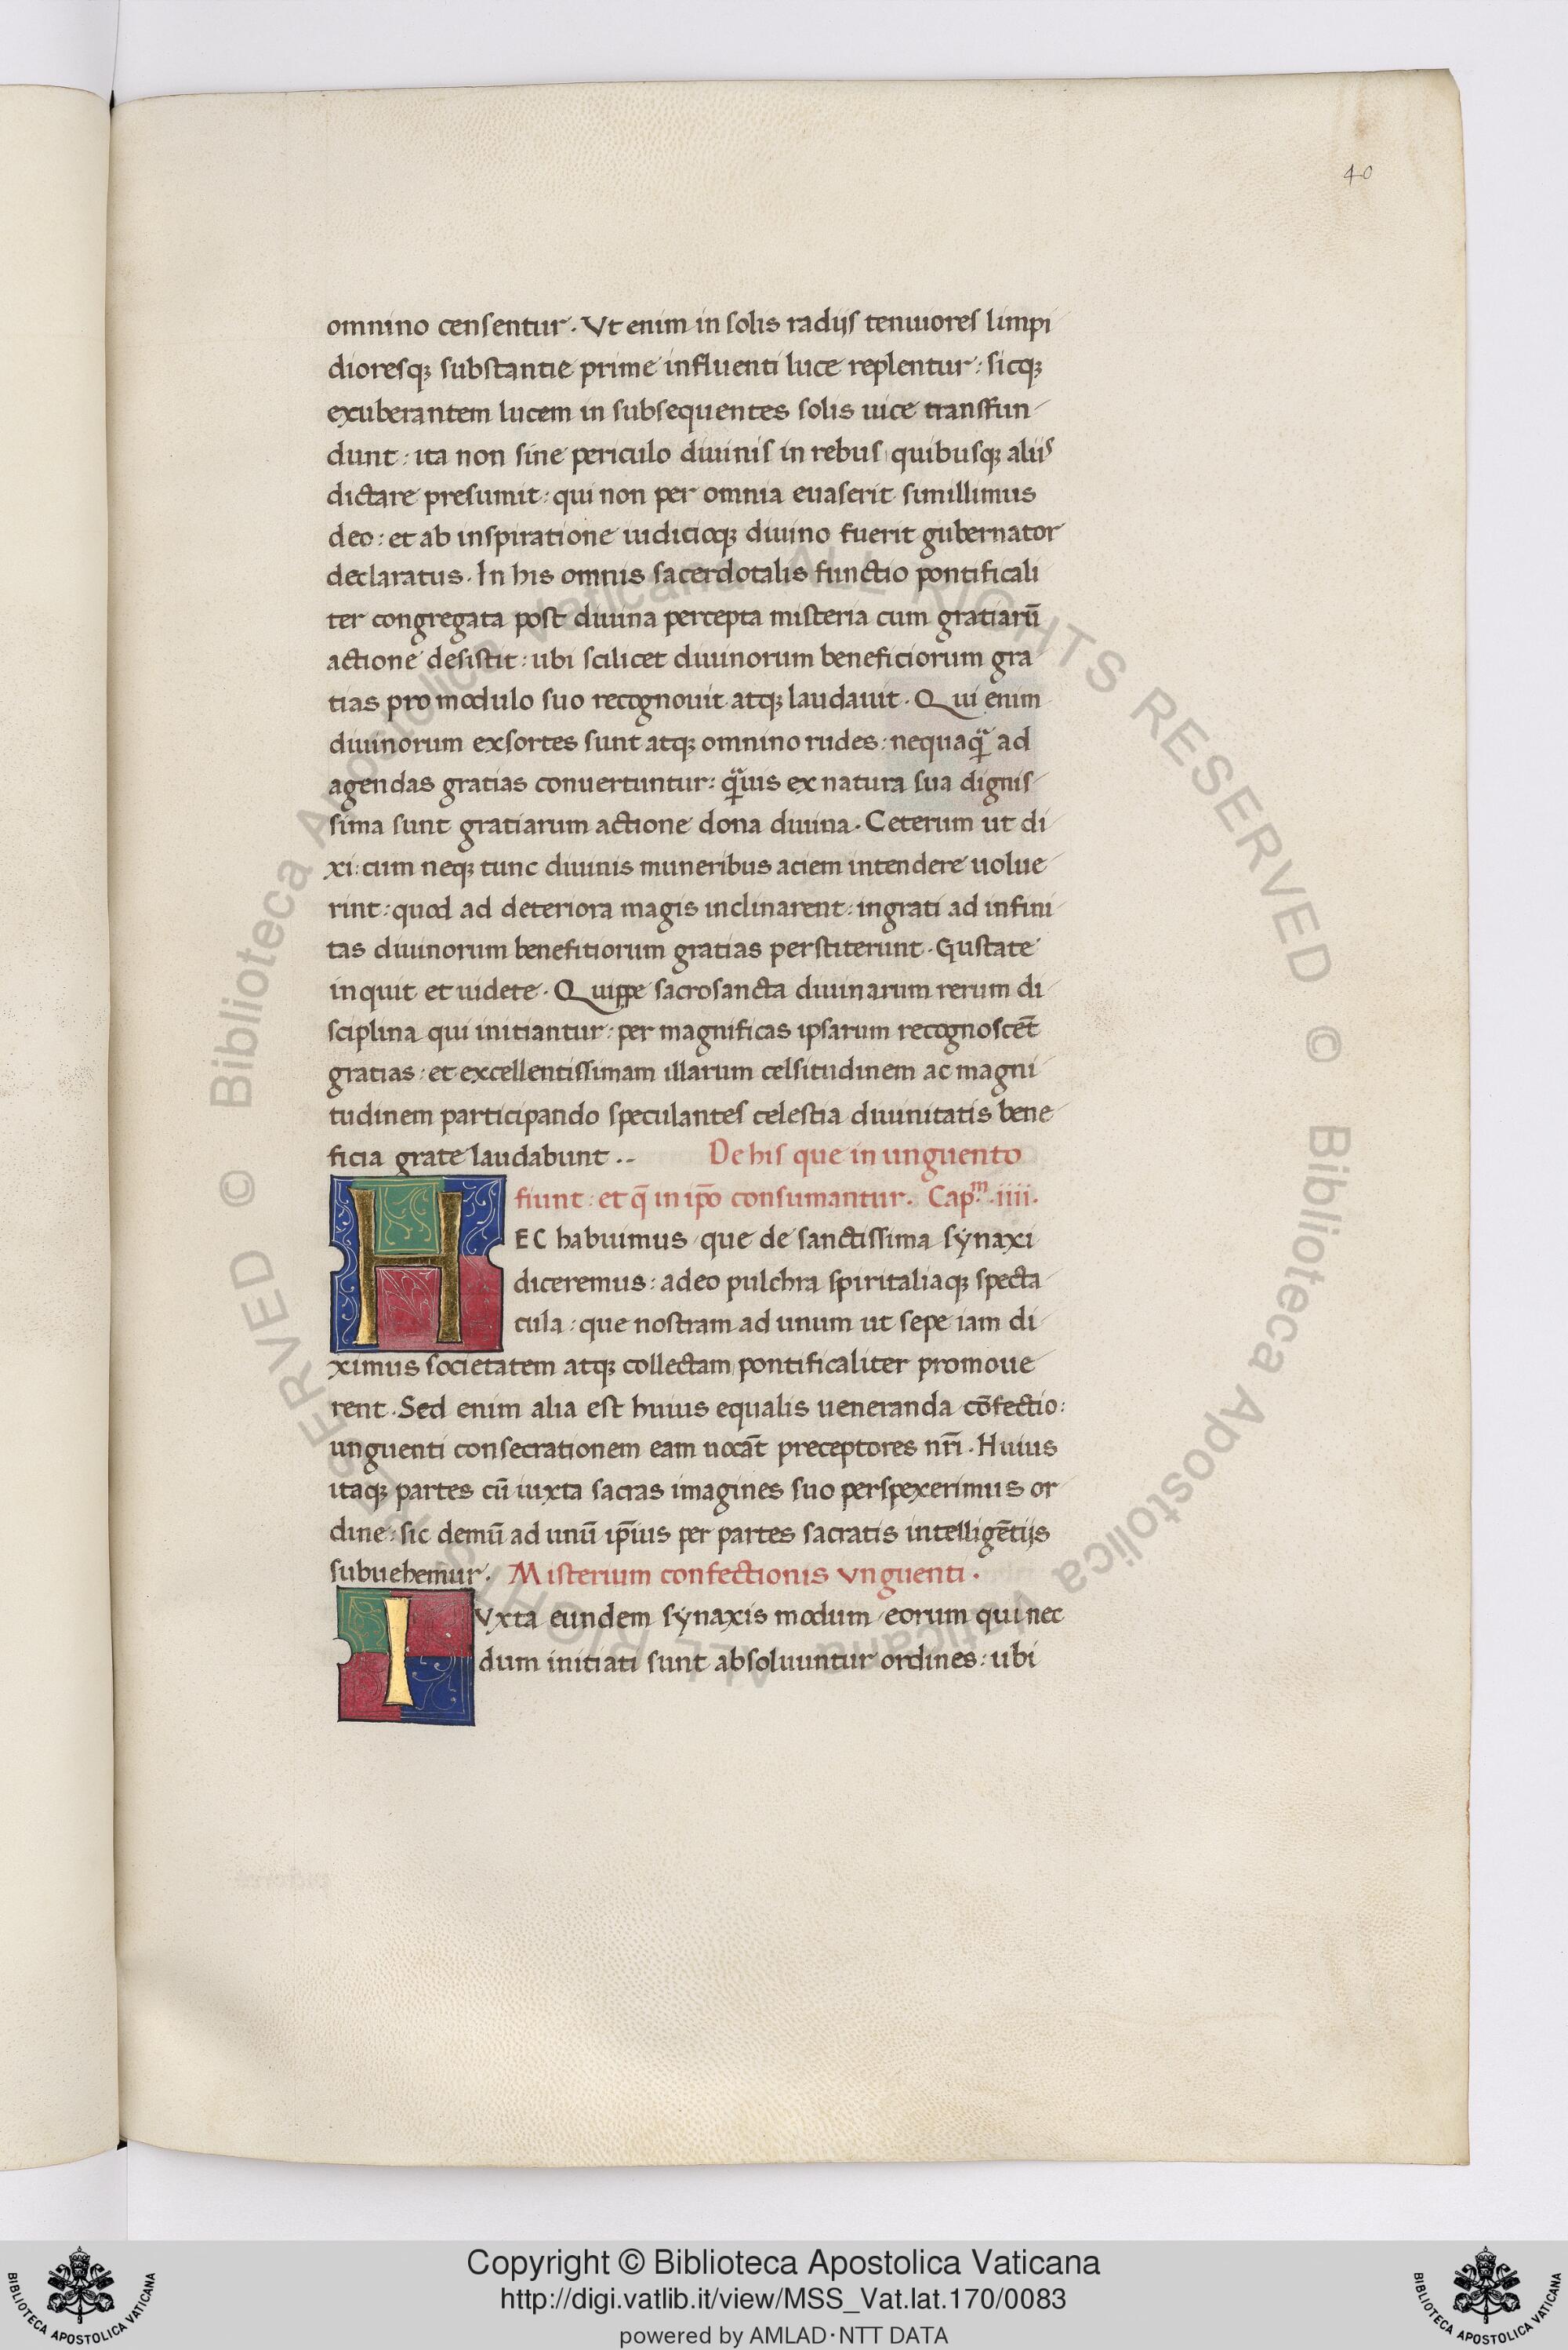 40
omnino censentur. Vt enim in solis radijs tenuiores limpi
dioresq; substantie prime influenti luce replentur: sicq;
exuberantem lucem in subsequentes solis uice transfun
dunt: ita non sine periculo diuinis in rebus quibusq; aliis
dictare presumit: qui non per omnia euaserit simillimus
deo: et ab inspiratione iudicioq; diuino fuerit gubernator
declaratus. In his omnis sacerdotalis functio pontificali
ter congregata post diuina percepta misteria cum gratiarū
actione desistit: ubi scilicet diuinorum beneficiorum gra
tias pro modulo suo recognouit atq; laudauit. Qui enim
diuinorum exsortes sunt atq; omnino rudes: nequaq̃ ad
agendas gratias conuertuntur: q̃uis ex natura sua dignis
sima sunt gratiarum actione dona diuina. Ceterum ut di
xi: cum neq; tunc diuinis muneribus aciem intendere uolue
rint: quod ad deteriora magis inclinarent: ingrati ad infini
tas diuinorum benefitiorum gratias perstiterunt. Gustate
inquit et uidete. Quippe sacrosancta diuinarum rerum di
sciplina qui initiantur: per magnificas ipsarum recognoscēt
gratias: et excellentissimam illarum celsitudinem ac magni
tudinem participando speculantes celestia diuinitatis bene
ficia grate laudabunt.. De his que in unguento
fiunt: et q̄ in ip̄o consumantur. Cap.m .iiii.
HEC habuimus que de sanctissima sÿnaxi
diceremus: adeo pulchra spiritaliaq; specta
cula: que nostram ad unum ut sepe iam di
ximus societatem atq; collectam pontificaliter promoue
rent. Sed enim alia est huius equalis ueneranda cōfectio:
unguenti consecrationem eam uocāt preceptores nr̄i. Huius
itaq; partes cū iuxta sacras imagines suo perspexerimus or
dine: sic demū ad unū ip̄ius per partes sacratis intelligētijs
subuehemur. Misterium confectionis vnguenti.
IVxta eundem sÿnaxis modum eorum qui nec
dum initiati sunt absoluuntur ordines: ubi
© Biblioteca Apostolica Vaticana ALL RIGHTS RESERVED
© Biblioteca Apostolica Vaticana ALL RIGHTS RESERVED
Copyright © Biblioteca Apostolica Vaticana
http://digi.vatlib.it/view/MSS_Vat.lat.170/0083
powered by AMLAD·NTT DATA
BIBLIOTECA APOSTOLICA VATICANA
BIBLIOTECA APOSTOLICA VATICANA